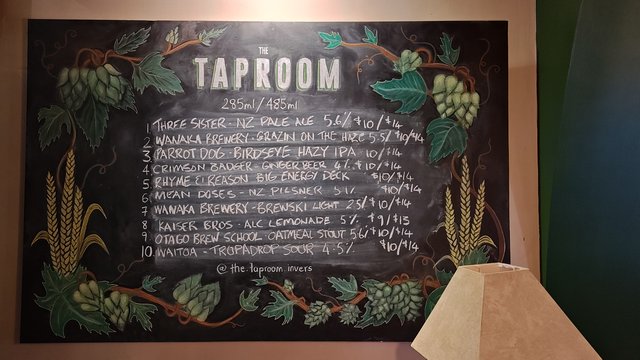 THE
TAPROOM
285ml/485ml
1 THREE SISTER - NZ PALE ALE 5.6% $10/$14
2 WANAKA BREWERY - GRAZIN ON THE HAZE 5.5% $10/$14
3 PARROT DOG - BIRDSEYE HAZY IPA $10/$14
4 CRIMSON BADGER - GINGER BEER 4% $10/$14
5 RHYME & REASON BIG ENERGY DECK $10/$14
6 MEAN DOSES - NZ PILSNER 5% $10/$14
7 WANAKA BREWERY - BREWSKI LIGHT 2.5% $10/$14
8 KAISER BROS - ALC LEMONADE 5% $9/$13
9 OTAGO BREW SCHOOL - OATMEAL STOUT 5.6% $10/$14
10 WAITOA - TROPADROP SOUR 4.5% $10/$14
@the.taproom.invers